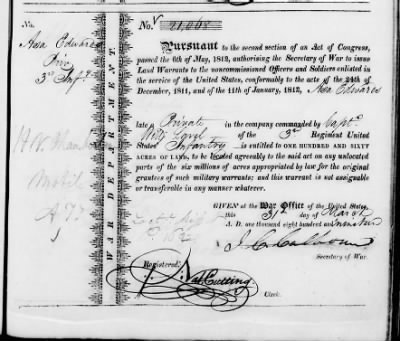 No.
Asa Edwards
Priv
3rd Infy
WAR DEPARTMENT.
No. 21,068
Pursuant to the second section of an Act of Congress,
passed the 6th of May, 1812, authorising the Secretary of War to issue
Land Warrants to the noncommissioned Officers and Soldiers enlisted in
the service of the United States, conformably to the acts of the 24th
December, 1811, and of the 11th January, 1812, Asa Edwards
late a Private in the company commanded by Capt
of the 3rd Regiment United
States Infantry is entitled to ONE HUNDRED AND SIXTY
ACRES OF LAND, to be located agreeably to the said act on any unlocated
parts of the six millions of acres appropriated by law for the original
grantees of such military warrants; and this warrant is not assignable
or transferable in any manner whatever.
GIVEN at the War Office of the United States,
this 31st day of March
A. D. one thousand eight hundred and
J. C. Calhoun
Secretary of War.
Registered,
Nat Cutting,
Clerk.